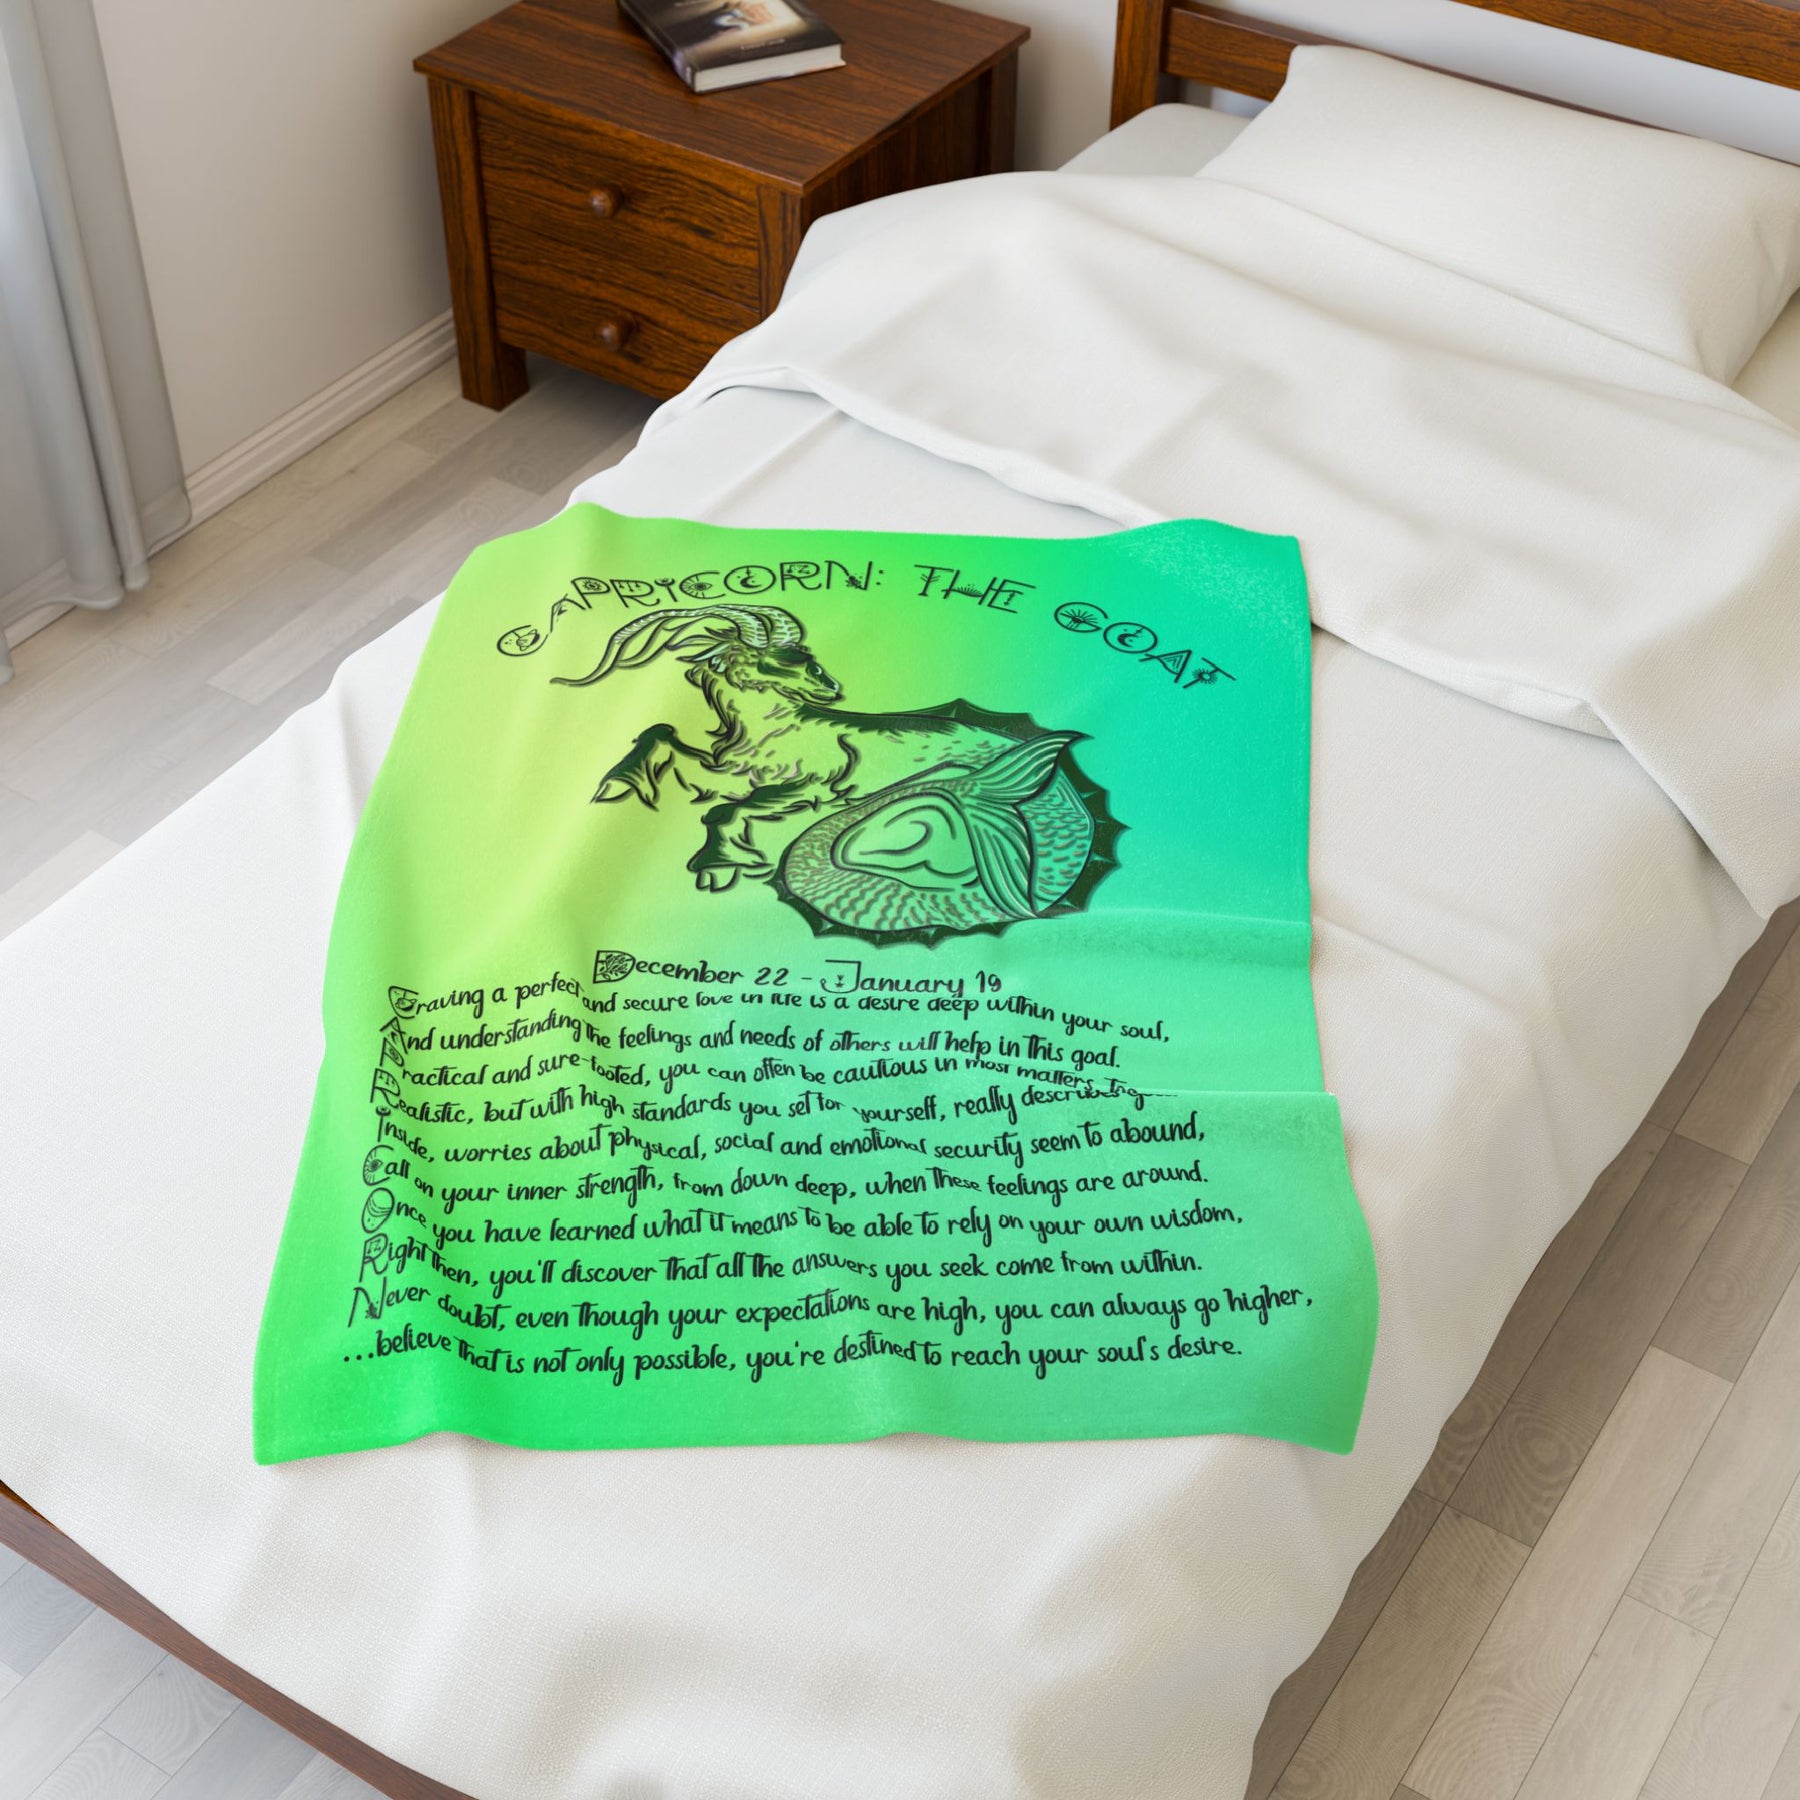 CAPRICORN: THE GOAT
December 22 - January 19
Craving a perfect and secure love in life is a desire deep within your soul,
And understanding the feelings and needs of others will help in this goal.
Practical and sure-footed, you can often be cautious in most matters, too
Realistic, but with high standards you set for yourself, really describes
Inside, worries about physical, social and emotional security seem to abound,
Call on your inner strength, from down deep, when these feelings are around.
Once you have learned what it means to be able to rely on your own wisdom,
Right then, you'll discover that all the answers you seek come from within.
Never doubt, even though your expectations are high, you can always go higher,
...believe that is not only possible, you're destined to reach your soul's desire.